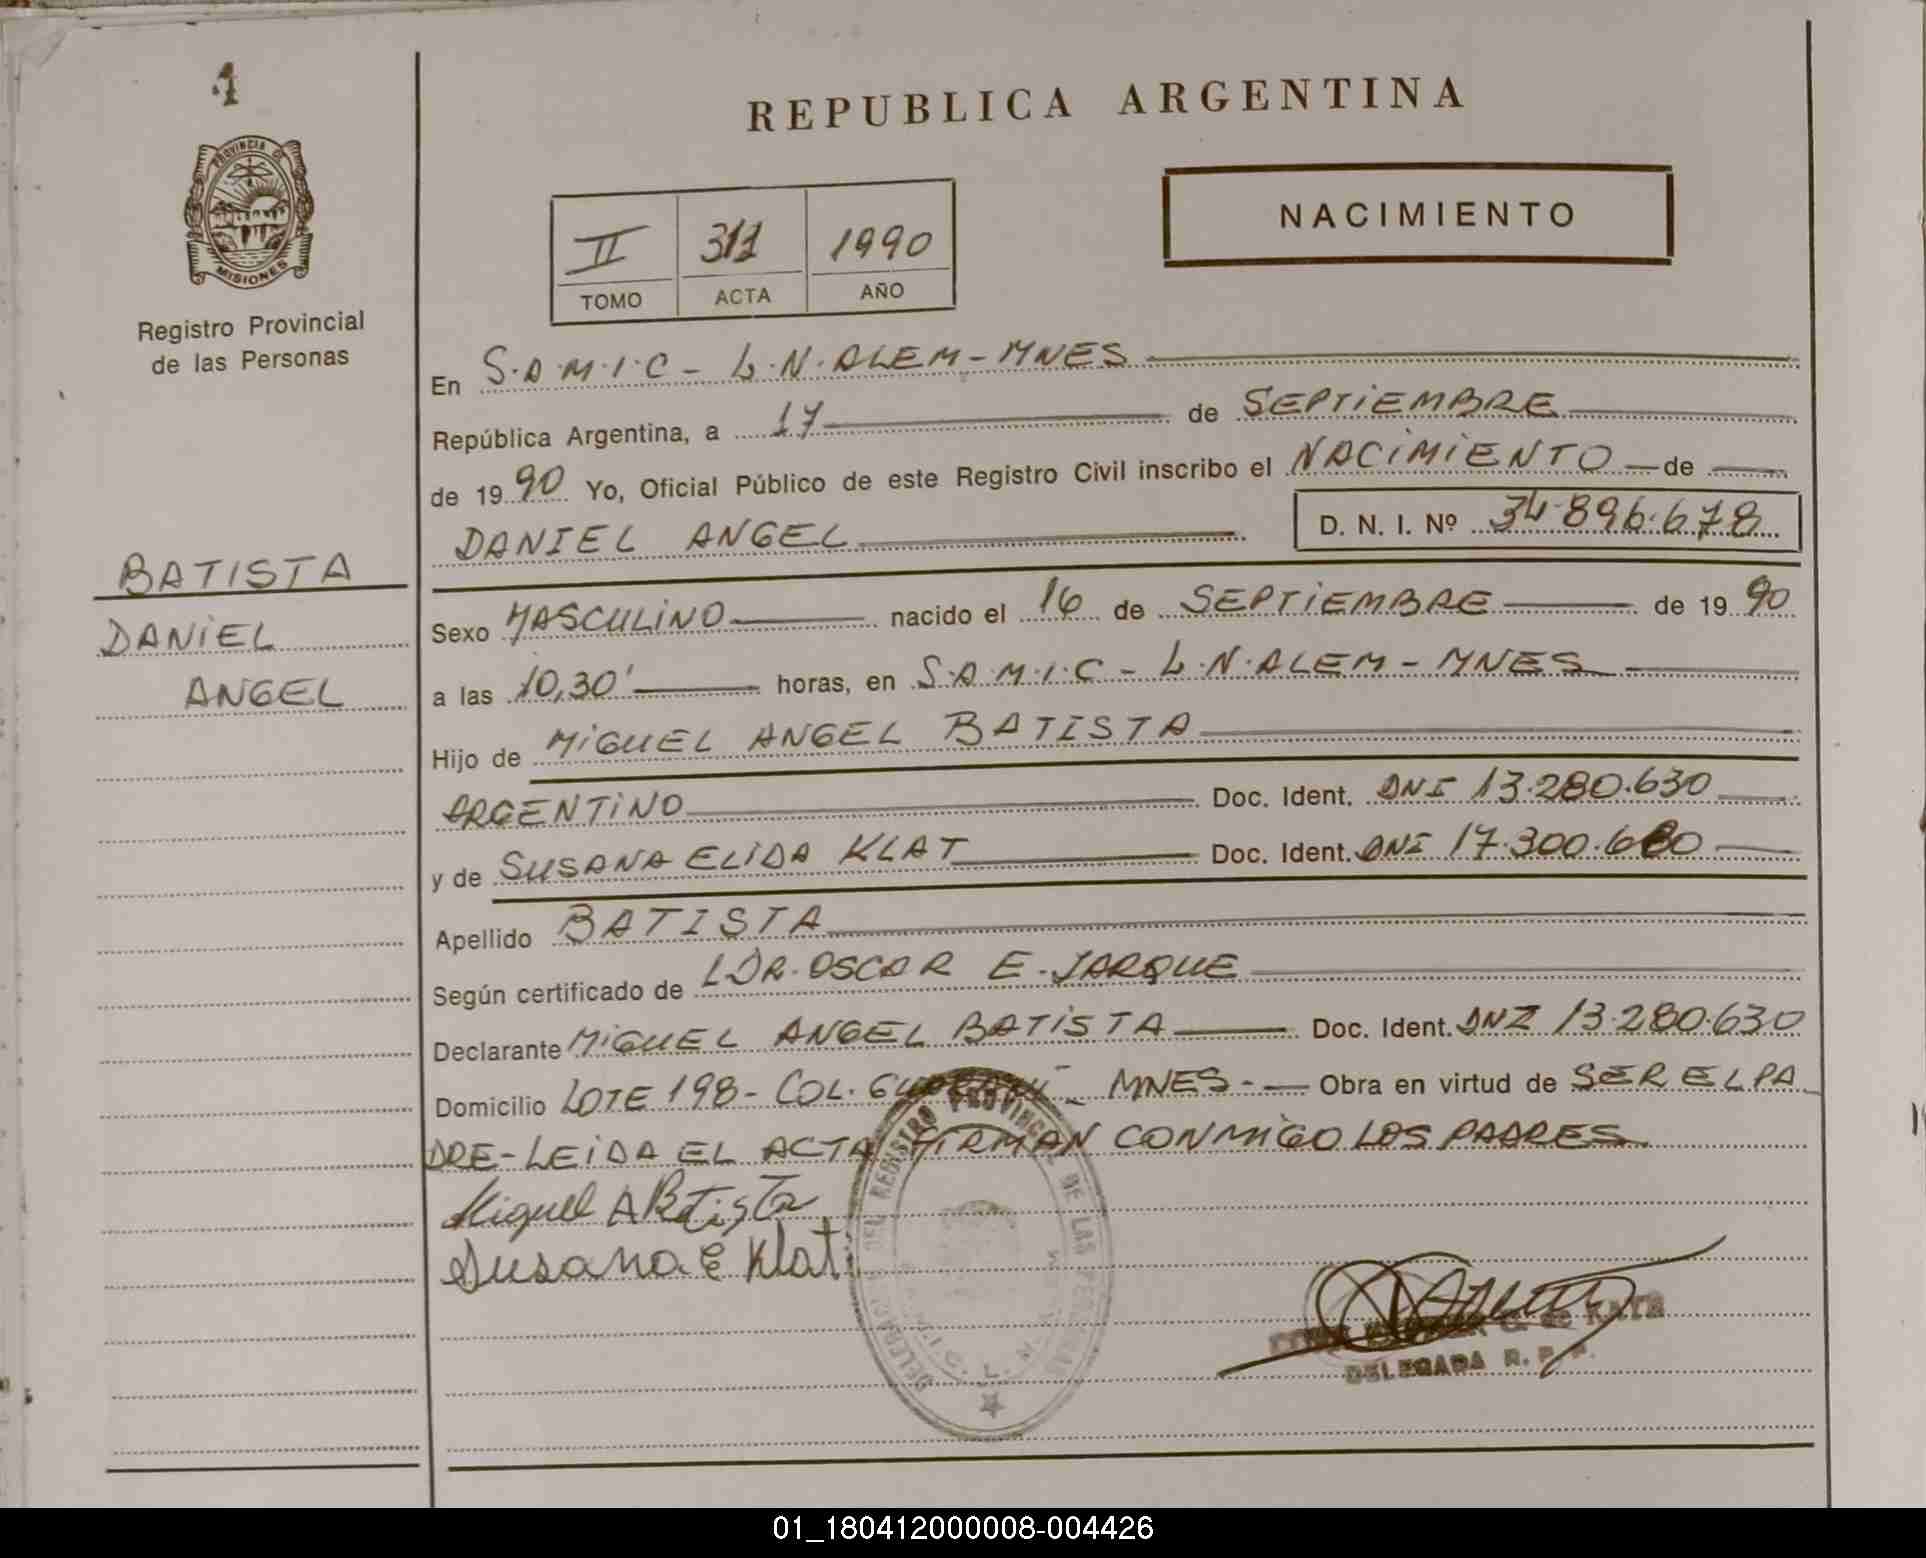 1
PROVINCIA DE
MISIONES
Registro Provincial
de las Personas
BATISTA
DANIEL
ANGEL
REPUBLICA ARGENTINA
NACIMIENTO
II 311 1990
TOMO ACTA AÑO
En S.A.M.I.C - L.N.ALEM-MNES
República Argentina, a 17 de SEPTIEMBRE
de 1990 Yo, Oficial Público de este Registro Civil inscribo el NACIMIENTO de
DANIEL ANGEL D. N. I. Nº 34.896.678
Sexo MASCULINO nacido el 16 de SEPTIEMBRE de 1990
a las 10,30' horas, en S.A.M.I.C - L.N.ALEM - MNES
Hijo de MIGUEL ANGEL BATISTA
ARGENTINO Doc. Ident. DNI 13.280.630
y de SUSANA ELIDA KLAT Doc. Ident. DNI 17.300.680
Apellido BATISTA
Según certificado de DR. OSCAR E. JARQUE
Declarante MIGUEL ANGEL BATISTA Doc. Ident. DNI 13.280.630
Domicilio LOTE 198- COL. GUARANI - MNES- Obra en virtud de SER EL PA
DRE-LEIDA EL ACTA FIRMAN CONMIGO LOS PADRES
Miguel A Batista
Susana E Klat
DEL REGISTRO PROVINCIAL DE LAS PERSONAS
G. de KATZ
DELEGADA R. P. P.
01_180412000008-004426